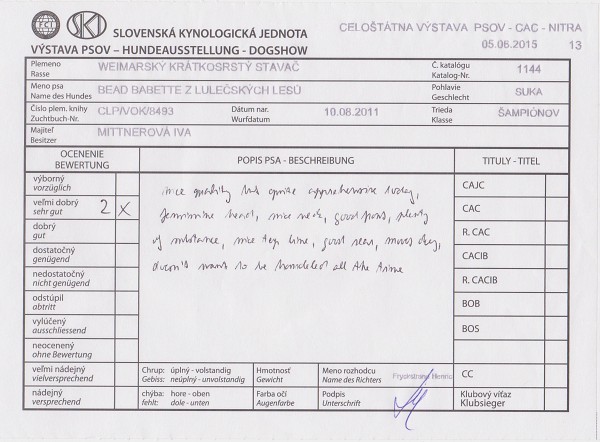 FCI SKJ
SLOVENSKÁ KYNOLOGICKÁ JEDNOTA
VÝSTAVA PSOV – HUNDEAUSSTELLUNG - DOGSHOW
CELOŠTÁTNA VÝSTAVA PSOV - CAC - NITRA
05.06.2015 13
Plemeno
Rasse
WEIMARSKÝ KRÁTKOSRSTÝ STAVAČ
Č. katalógu
Katalog-Nr.
1144
Meno psa
Name des Hundes
BEAD BABETTE Z LULEČSKÝCH LESŮ
Pohlavie
Geschlecht
SUKA
Číslo plem. knihy
Zuchtbuch-Nr.
CLP/VOK/8493
Dátum nar.
Wurfdatum
10.08.2011
Trieda
Klasse
ŠAMPIÓNOV
Majiteľ
Besitzer
MITTNEROVÁ IVA
OCENENIE
BEWERTUNG
POPIS PSA - BESCHREIBUNG
TITULY - TITEL
výborný
vorzüglich
veľmi dobrý
sehr gut
2 X
dobrý
gut
dostatočný
genügend
nedostatočný
nicht genügend
odstúpil
abtritt
vylúčený
ausschliessend
neocenený
ohne Bewertung
veľmi nádejný
vielversprechend
nádejný
versprechend
nice quality but quite apprehensive today,
feminine head, nice neck, good front, plenty
of substance, nice top line, good rear, moves okey,
doesn't want to be handled all the time
CAJC
CAC
R. CAC
CACIB
R. CACIB
BOB
BOS
CC
Klubový víťaz
Klubsieger
Chrup: úplný - volstandig
Gebiss: neúplný - unvolstandig
Hmotnosť
Gewicht
Meno rozhodcu
Name des Richters
chýba: hore - oben
fehlt: dole - unten
Farba očí
Augenfarbe
Podpis
Unterschrift